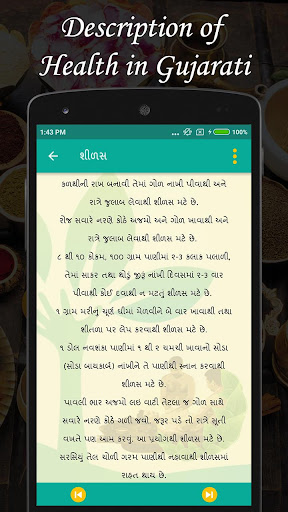 Description of
Health in Gujarati
1:43 PM
100%
શીળસ
કળથીની રાખ બનાવી તેમાં ગોળ નાખી પીવાથી અને
રાત્રે જુલાબ લેવાથી શીળસ મટે છે.
રોજ સવારે નરણે કોઠે અજમો અને ગોળ ખાવાથી અને
રાત્રે જુલાબ લેવાથી શીળસ મટે છે.
૮ થી ૧૦ કોકમ, ૧૦૦ ગ્રામ પાણીમાં ૨-૩ કલાક પલાળી,
તેમાં સાકર તથા થોડું જીરૂ નાંખી દિવસમાં ૨-૩ વાર
પીવાથી કોઈ દવાથી ન મટતું શીળસ મટે છે.
૧ ગ્રામ મરીનું ચૂર્ણ ઘીમાં મેળવીને બે વાર ખાવાથી તથા
શીતળા પર લેપ કરવાથી શીળસ મટે છે.
૧ ડોલ નવશંકા પાણીમાં ૧ થી ૨ ચમચી ખાવાનો સોડા
(સોડા બાયકાર્બ) નાંખીને તે પાણીથી સ્નાન કરવાથી
શીળસ મટે છે.
પાવલી ભાર અજમો લઇ વાટી તેટલા જ ગોળ સાથે
સવારે નરણે કોઠે ગળી જવો. જરૂર પડે તો રાત્રે સૂતી
વખતે પણ આમ કરવું. આ પ્રયોગથી શીળસ મટે છે.
સરસિયું તેલ ચોળી ગરમ પાણીથી નહાવાથી શીળસમાં
રાહત થાય છે.